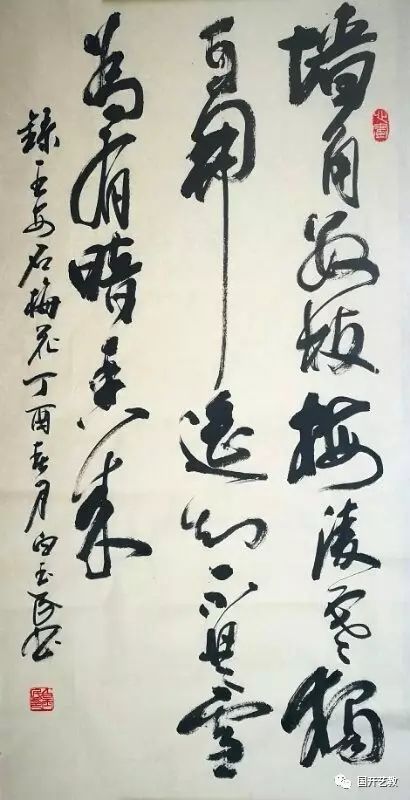 墙角数枝梅凌寒獨
自開遥知不是雪
為有暗香来
錄王安石梅花丁酉春月白玉书
国开艺教